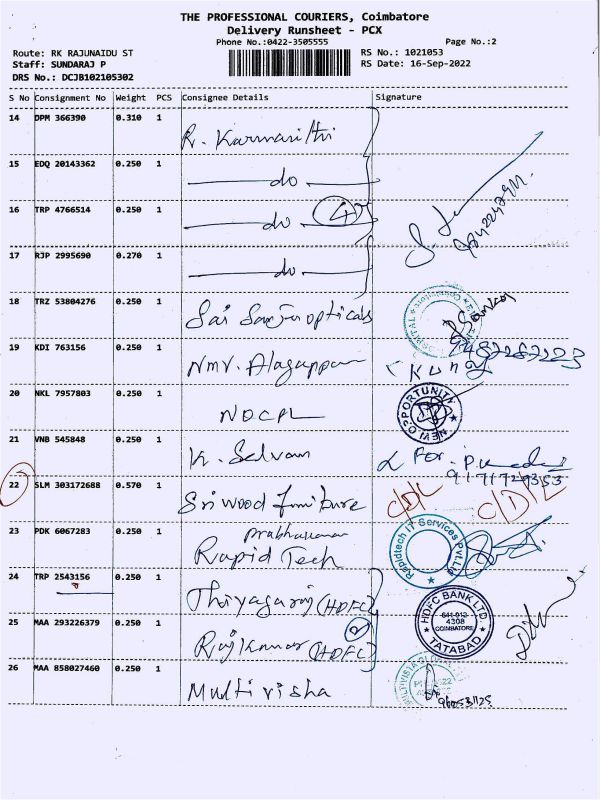 THE PROFESSIONAL COURIERS, Coimbatore
Delivery Runsheet - PCX
Phone No.:0422-3505555 Page No.:2
Route: RK RAJUNAIDU ST RS No.: 1021053
Staff: SUNDARAJ P RS Date: 16-Sep-2022
DRS No.: DCJB102105302
S No Consignment No Weight PCS Consignee Details Signature
14 DPM 366390 0.310 1
15 EDQ 20143362 0.250 1 do
16 TRP 4766514 0.250 1 do 4
17 RJP 2995690 0.270 1 do
18 TRZ 53804276 0.250 1 Sai opticals
19 KDI 763156 0.250 1 Nmv. Alagappan
20 NKL 7957803 0.250 1 NOCPL NEW OPPORTUNITY
21 VNB 545848 0.250 1 K. Selvam For
22 SLM 303172688 0.570 1 Sri wood furniture C/D/L C/D/L
prabhakaran
23 PDK 6067283 0.250 1 Rapid Tech Rapidtech IT Services Pvt.Ltd
24 TRP 2543156 0.250 1 Thiyagaraj (HDFC) HDFC BANK LTD
641-012 4308 COIMBATORE
TATABAD
25 MAA 293226379 0.250 1 Rajkumar (HDFC) 2
26 MAA 858027460 0.250 1 Multivisha